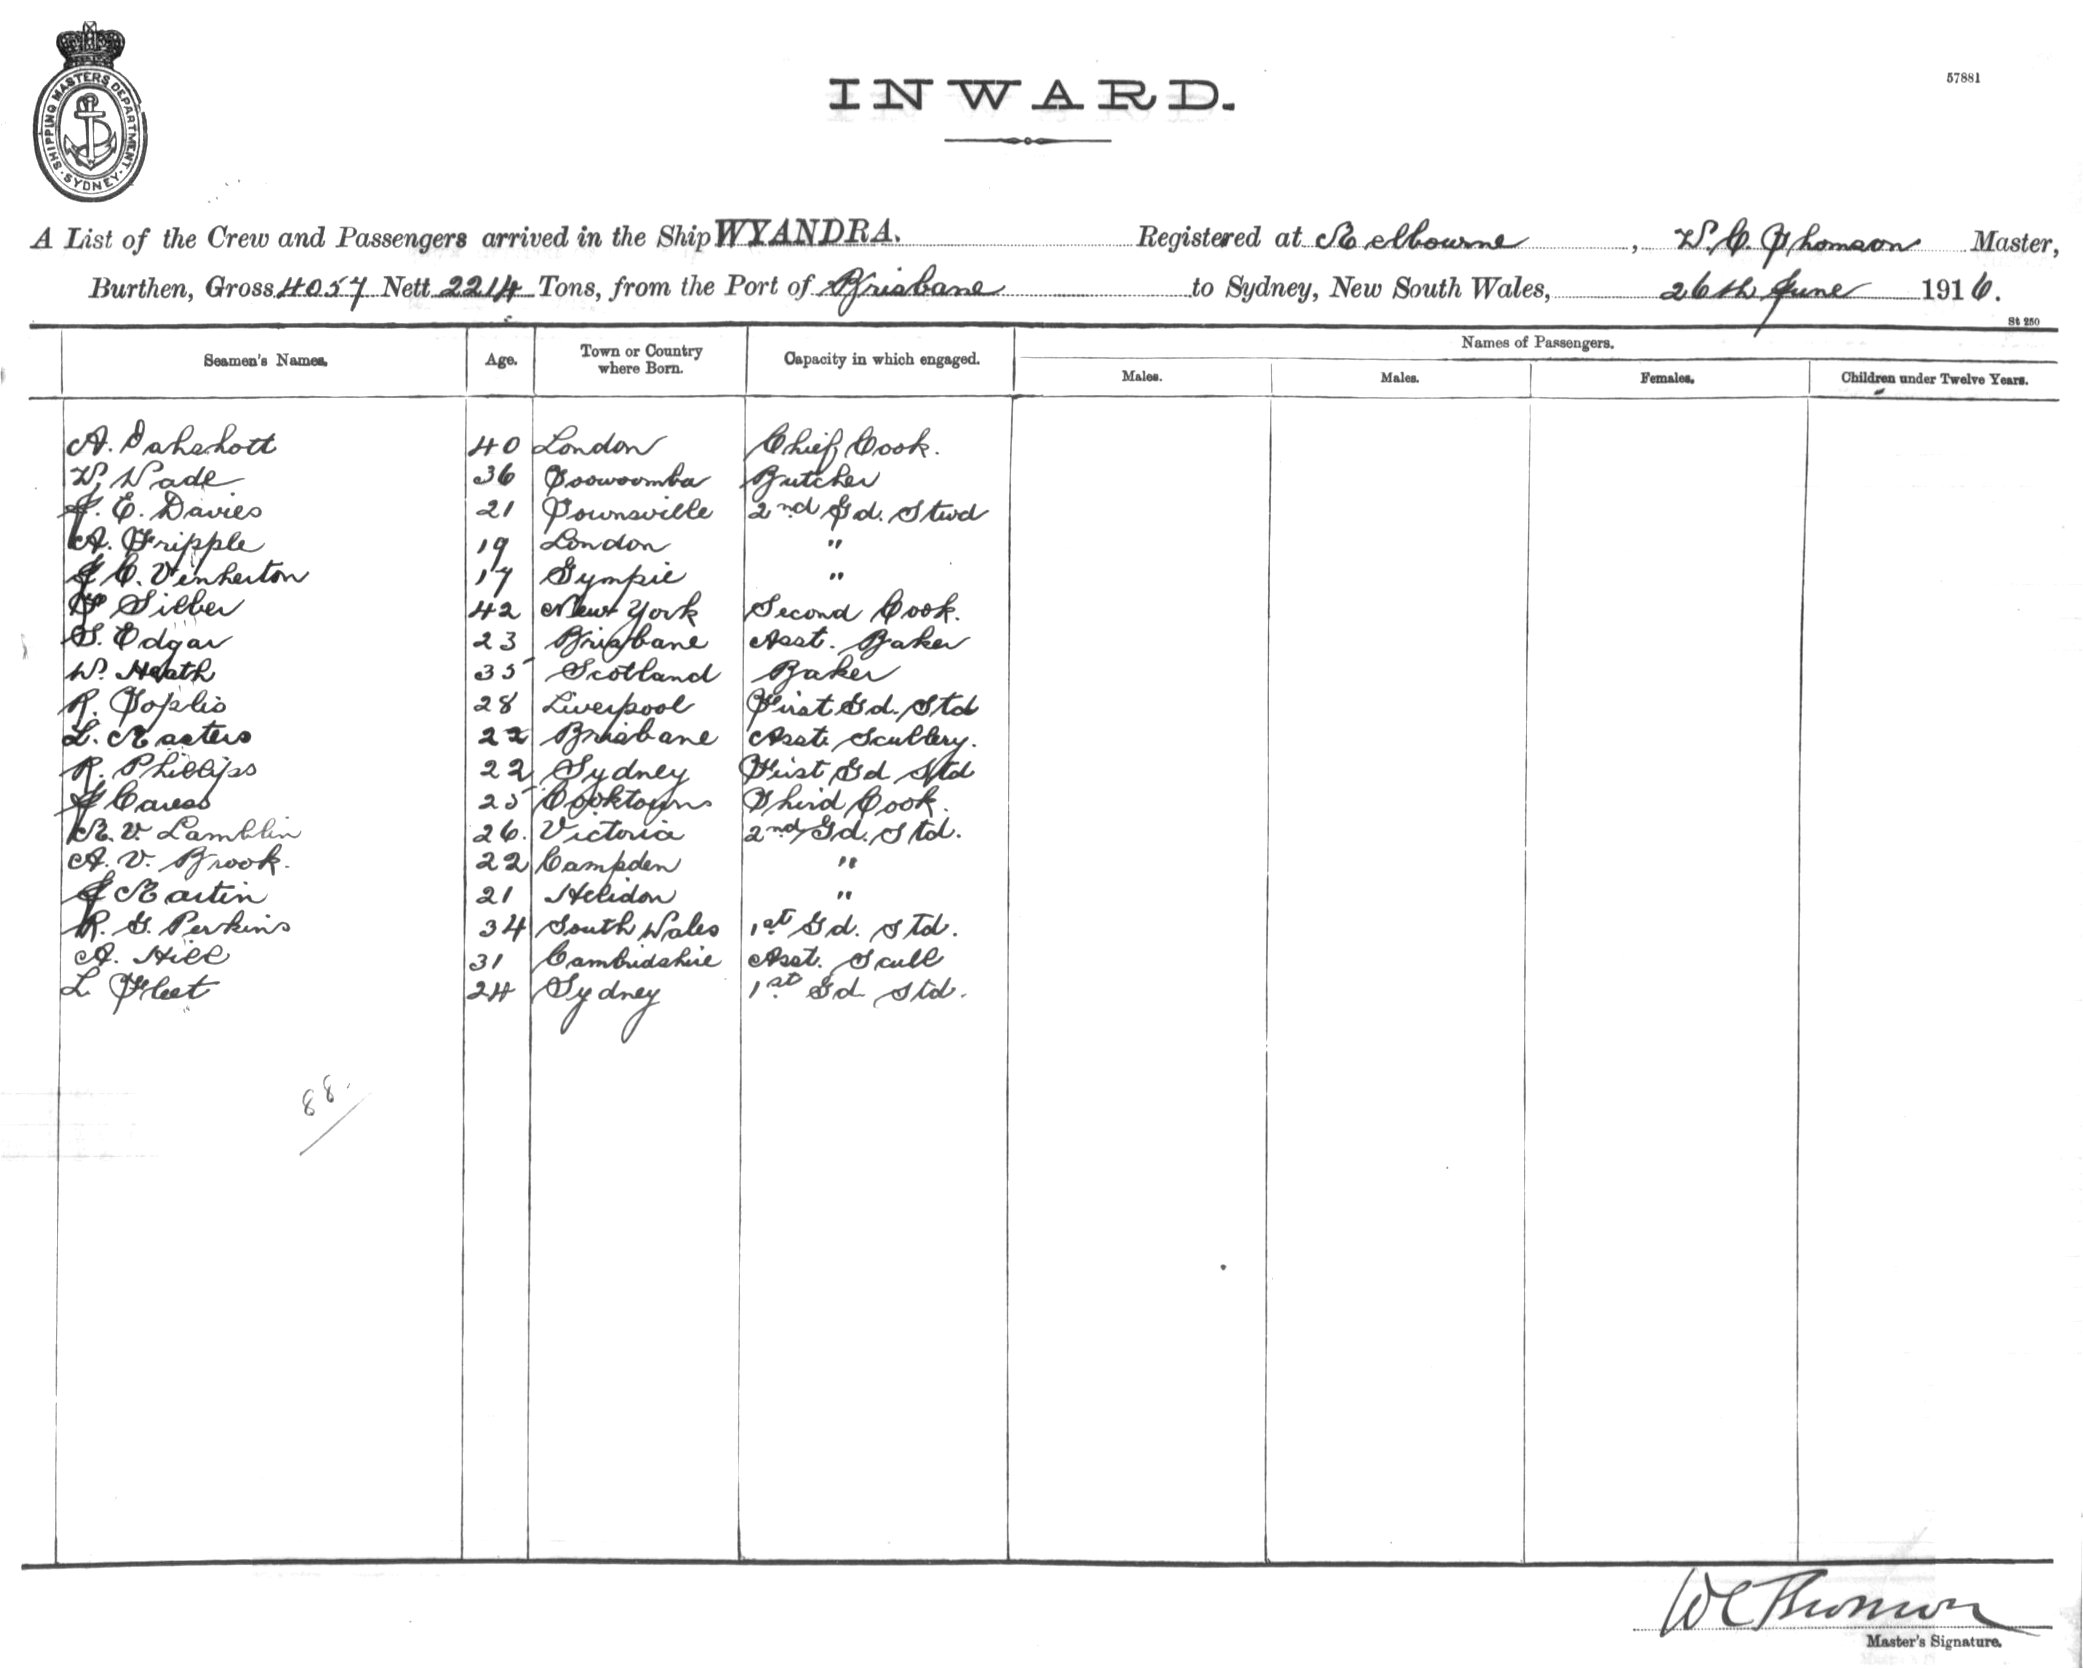 SHIPPING MASTERS DEPARTMENT. SYDNEY.
57881
INWARD.
A List of the Crew and Passengers arrived in the Ship WYANDRA. Registered at Melbourne, W. C. Thomson Master,
Burthen, Gross 4057 Nett 2214 Tons, from the Port of Brisbane to Sydney, New South Wales, 26th June 1916.
St 250
Seamen's Names. Age. Town or Country where Born. Capacity in which engaged. Names of Passengers.
Males. Males. Females. Children under Twelve Years.
A. 40 London Chief Cook.
W. Wade 36 Toowoomba Butcher
J. E. Davies 21 Townsville 2nd Gd. Stwd
A. Fripple 19 London "
J C. Venherton 17 Gympie "
Silber 42 New York Second Cook.
Edgar 23 Brisbane Asst. Baker
W. Heath 35 Scotland Baker
R. Toplis 28 Liverpool First Gd. Std
L. Masters 22 Brisbane Asst. Scullery.
R. Phillips 22 Sydney First Gd Std
J Caress 25 Cooktown Third Cook.
M. V. Lamblin 26. Victoria 2nd Gd. Std.
A. V. Brook. 22 Campden "
J Martin 21 Helidon "
R. G. Perkins 34 South Wales 1st Gd. Std.
A. Hill 31 Cambridshire Asst. Scull
L Fleet 24 Sydney 1st Gd Std.
88.
W C Thomson
Master's Signature.